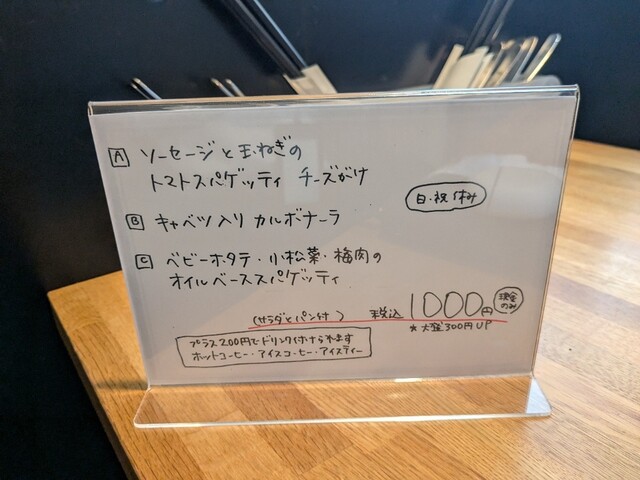 A ソーセージと玉ねぎの
トマトスパゲッティ チーズがけ
日・祝休み
B キャベツ入り カルボナーラ
C ベビーホタテ・小松菜・梅肉の
オイルベーススパゲッティ
(サラダとパン付) 税込 1000円 現金のみ
*大盛300円UP
プラス200円でドリンク付けられます
ホットコーヒー・アイスコーヒー・アイスティー